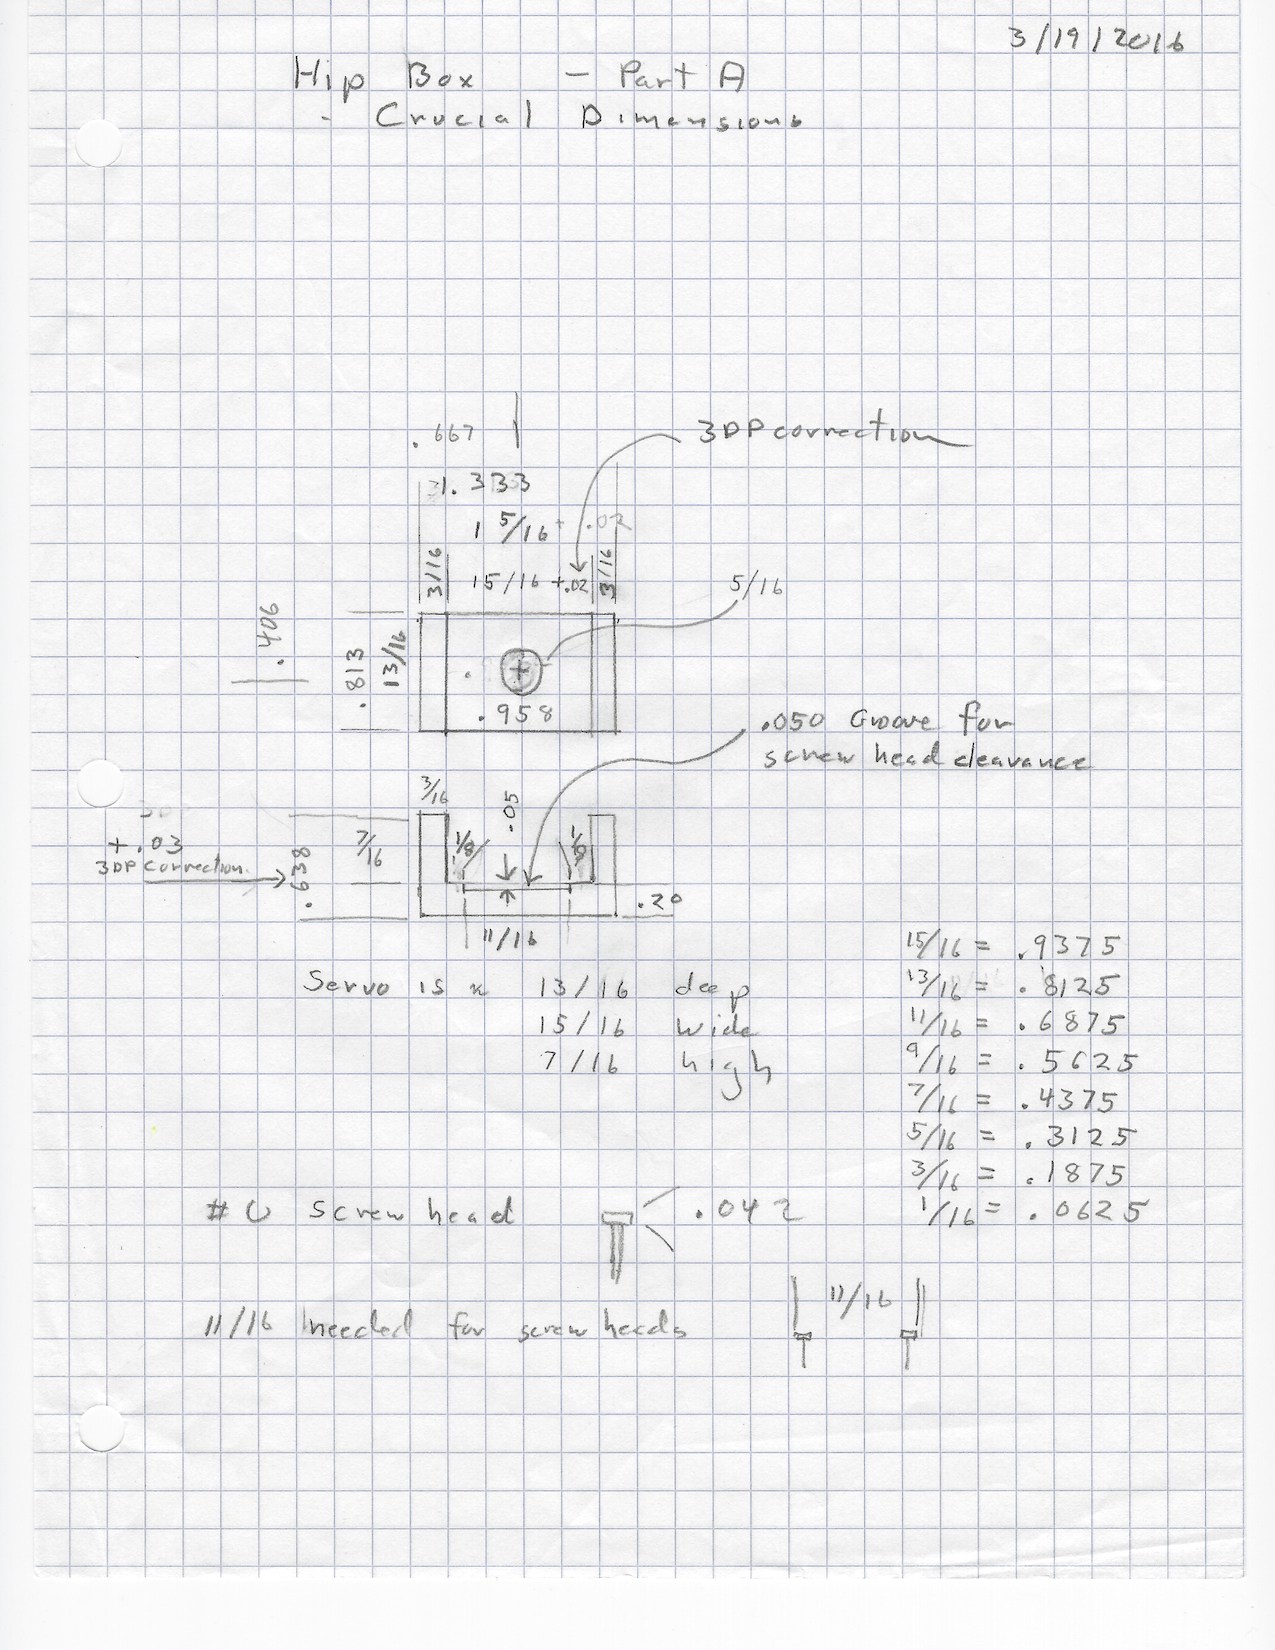 3/19/2016
Hip Box - Part A
- Crucial Dimensions
.667
3DP correction
1.333
1 5/16 + .02
3/16
15/16 +.02
3/16
5/16
.406
.813
13/16
.958
.050 Groove for
screw head clearance
3/16
.05
+.03
3DP correction
.638
7/16
1/8
1/8
.20
11/16
Servo is x 13/16 deep
15/16 wide
7/16 high
15/16 = .9375
13/16 = .8125
11/16 = .6875
9/16 = .5625
7/16 = .4375
5/16 = .3125
3/16 = .1875
1/16 = .0625
#0 screw head .042
11/16 needed for screw heads
11/16